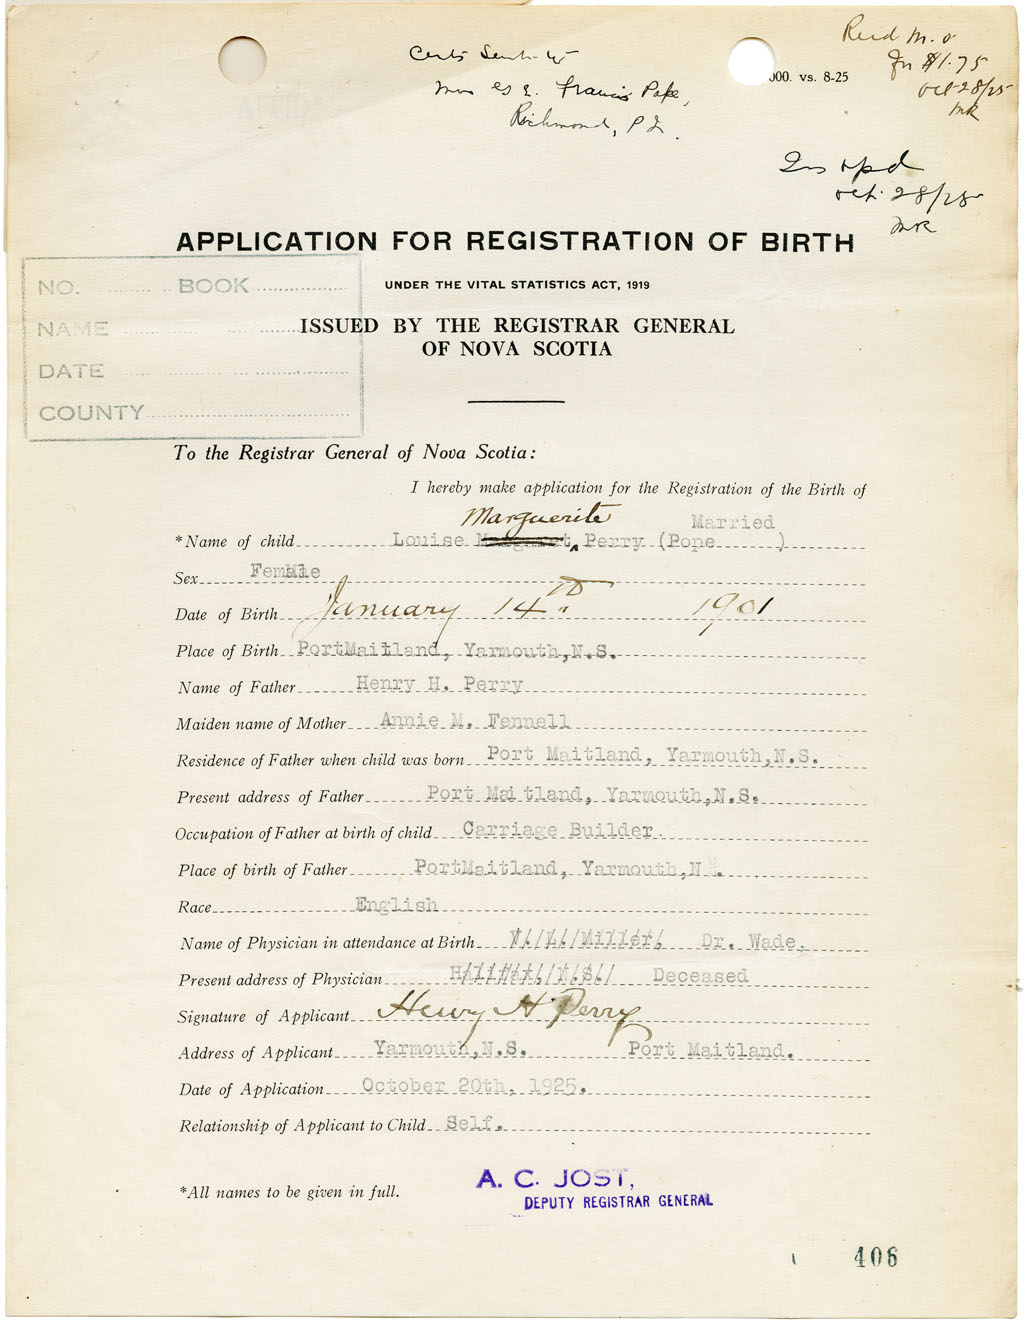 Rec'd M. O.
for $1.75
Oct-28/25
MR
Certs Sent to
Mrs E. Francis Pope,
Richmond, P.I.
000. vs. 8-25
Oct. 28/25
MR
APPLICATION FOR REGISTRATION OF BIRTH
UNDER THE VITAL STATISTICS ACT, 1919
ISSUED BY THE REGISTRAR GENERAL
OF NOVA SCOTIA
NO. BOOK
NAME
DATE
COUNTY
To the Registrar General of Nova Scotia:
I hereby make application for the Registration of the Birth of
Marguerite Married
*Name of child Louise Margaret Perry (Pope )
Sex Female
Date of Birth January 14th 1901
Place of Birth PortMaitland, Yarmouth,N.S.
Name of Father Henry H. Perry
Maiden name of Mother Annie M. Fennell
Residence of Father when child was born Port Maitland, Yarmouth,N.S.
Present address of Father Port Maitland, Yarmouth,N.S.
Occupation of Father at birth of child Carriage Builder.
Place of birth of Father PortMaitland, Yarmouth,N.S.
Race English
Name of Physician in attendance at Birth Miller, Dr. Wade,
Present address of Physician Halifax, N.S. Deceased
Signature of Applicant Henry H Perry
Address of Applicant Yarmouth,N.S. Port Maitland.
Date of Application October 20th, 1925.
Relationship of Applicant to Child Self.
*All names to be given in full.
A. C. JOST,
DEPUTY REGISTRAR GENERAL
406